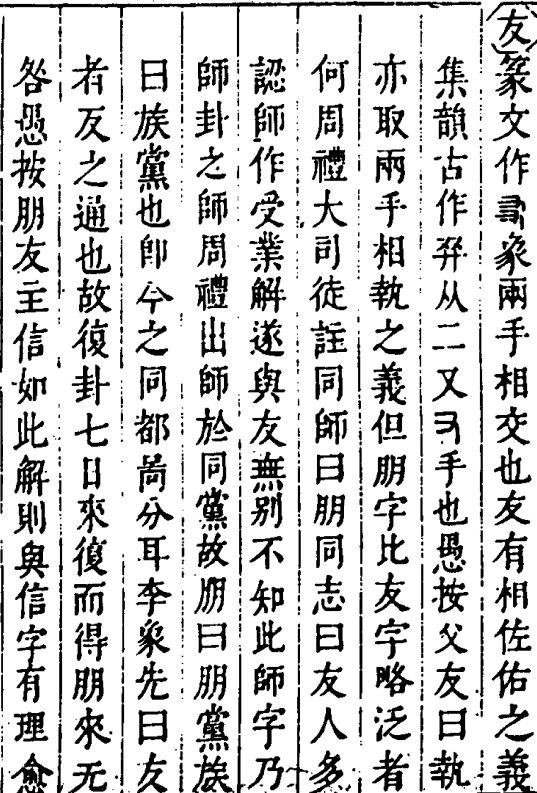 友篆文作𠬺象兩手相交也友有相佐佑之義
集韻古作㕛从二又又手也愚按父友曰執
亦取兩手相執之義但朋字比友字略泛者
何周禮大司徒註同師曰朋同志曰友人多
認師作受業解遂與友無別不知此師字乃
師卦之師周禮出師於同黨故朋曰朋黨族
曰族黨也卽今之同都啚分耳李象先曰友
者反之通也故復卦七日來復而得朋來无
咎愚按朋友主信如此解則與信字有理愈